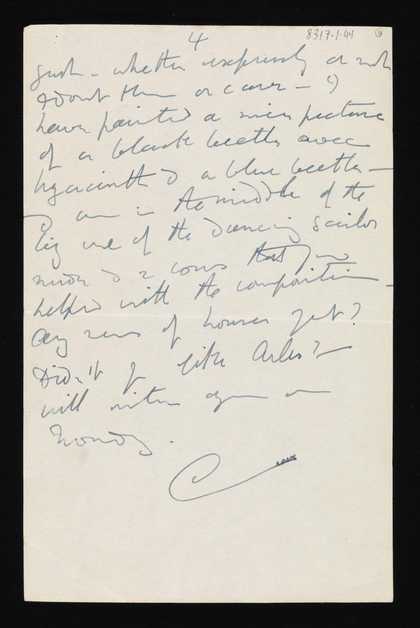 4
8317.1.44
gush - whether expressly or not
I don't them or care - I
have painted a nice picture
of a black beetle
hyacinth & a blue beetle -
I am in the middle of the
big one of the dancing sailor
& 2 cows that you
helped with the composition -
Any news of houses yet?
Didn't you like Arles? I
will write again on
Monday.
C